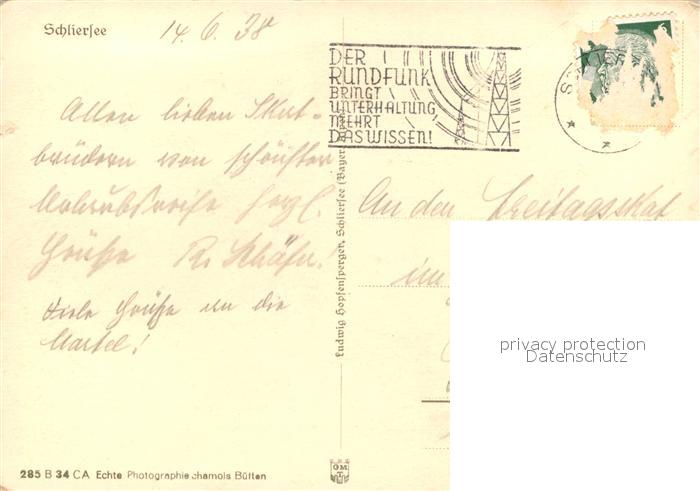 Schliersee 14.6.38
Allen lieben Skat-
brüdern von schönster
Urlaubsreise herzl.
Grüße R. Schäfer!
Viele Grüße an die
DER
RUNDFUNK
BRINGT
UNTERHALTUNG
MEHRT
DAS WISSEN!
Ludwig Hopfensperger, Schliersee (Bayer.
An den Freitagsskat
im
privacy protection
Datenschutz
285 B 34 CA Echte Photographie chamois Bütten